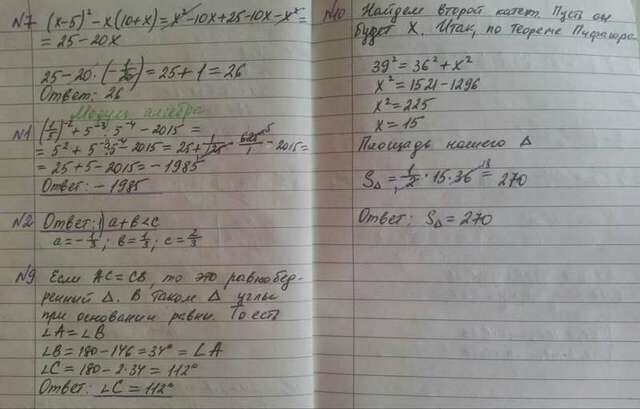 N7 (x-5)² - x(10+x) = x² - 10x + 25 - 10x - x² =
= 25 - 20x
25 - 20 · (-1/20) = 25 + 1 = 26
Ответ: 26
Модуль алгебра
N1 (1/5)⁻² + 5⁻³ : 5⁻⁴ - 2015 =
= 5² + 5⁻³ : 5⁻⁴ - 2015 = 25 + 1/125 · 625/1 - 2015 =
= 25 + 5 - 2015 = -1985
Ответ: -1985
N2 Ответ: 1) a+b<c
a = -1/3; b = 1/3; c = 2/3
N9 Если AC = CB, то это равнобед-
ренный Δ. В таком Δ углы
при основании равны. То есть
∠A = ∠B
∠B = 180 - 146 = 34° = ∠A
∠C = 180 - 2·34 = 112°
Ответ: ∠C = 112°
N10 Найдем второй катет. Пусть он
будет X. Итак, по теореме Пифагора
39² = 36² + x²
x² = 1521 - 1296
x² = 225
x = 15
Площадь нашего Δ
SΔ = 1/2 · 15 · 36 18 = 270
Ответ: SΔ = 270